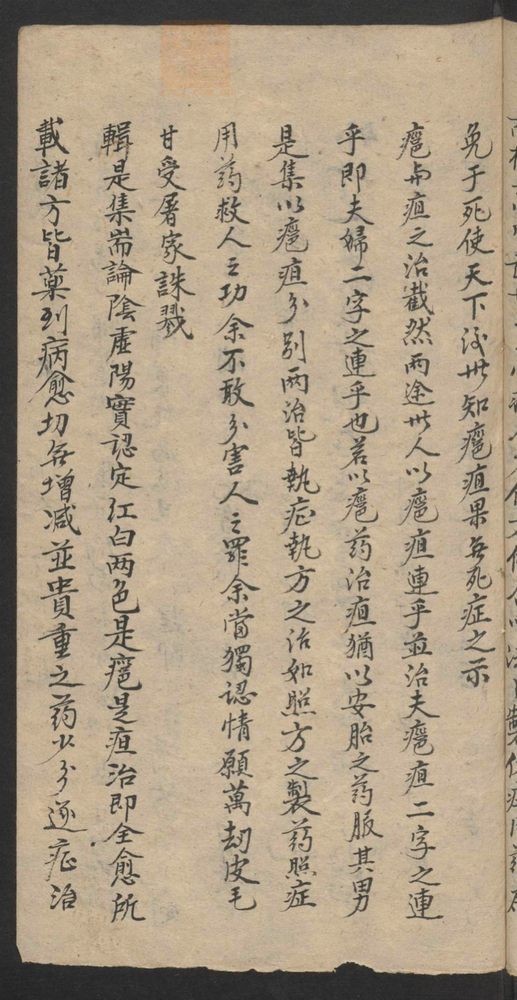 免于死使天下後世知癰疽果無死症之示
癰与疽之治截然两途世人以癰疽連乎並治夫癰疽二字之連
乎即夫婦二字之連乎也若以癰药治疽猶以安胎之药服其男
是集以癰疽分别两治皆執症執方之治如照方之製药照症
用药救人之功余不敢分害人之罪余當獨認情願萬刼皮毛
甘受屠家誅戮
輯是集耑論陰虚陽實認定红白两色是癰是疽治即全愈所
載諸方皆藥到病愈切無增减並貴重之药少分逐症治